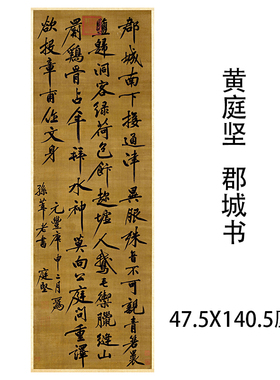 郡城南下接通津異服殊音不可親青箬裹
鹽歸洞客綠荷包飯趁墟人鵝毛禦臘縫山
罽鷄骨占年拜水神莫向公庭問重譯
欲投章甫作文身
元豐庚申二月爲
孫莘老書 庭堅
黄庭坚 郡城书
47.5X140.5